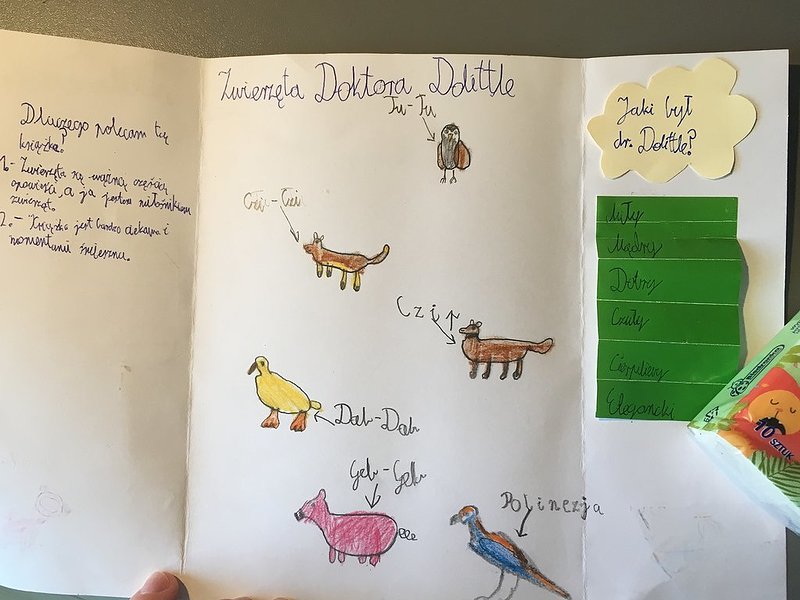 Dlaczego polecam tę
książkę?
1.- Zwierzęta są ważną częścią
opowieści, a ja jestem miłośnikiem
zwierząt.
2.- Książka jest bardzo ciekawa i
momentami śmieszna.
Zwierzęta Doktora Dolittle
Tu-Tu
Czi-Czi
Czip
Dab-Dab
Geb-Geb
Polinezja
Jaki był
dr. Dolittle?
Miły
Mądry
Dobry
Czuły
Cierpliwy
Elegancki
10 SZTUK